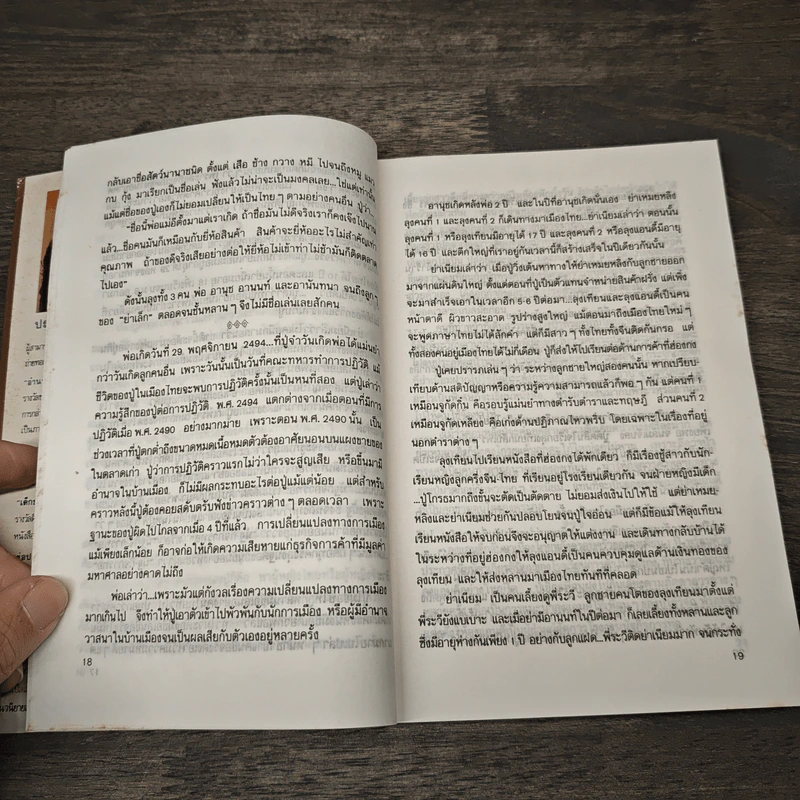 กลับเอาชื่อสัตว์นานาชนิด ตั้งแต่ เสือ ช้าง กวาง หมี ไปจนถึงหมู แมว
กบ กุ้ง มาเรียกเป็นชื่อเล่น ฟังแล้วไม่น่าจะเป็นมงคลเลย...ใช่แต่เท่านั้น
แม้แต่ชื่อของปู่เองก็ไม่ยอมเปลี่ยนให้เป็นไทยๆ ตามอย่างคนอื่น ปู่ว่า...
“ชื่อนี้พ่อแม่อั๊วตั้งมาแต่เราเกิด ถ้าชื่อมันไม่ดีจริงเราก็คงเจ๊งไปนาน
แล้ว...ชื่อคนมันก็เหมือนกับยี่ห้อสินค้า สินค้าจะยี่ห้ออะไรไม่สำคัญเท่า
คุณภาพ ถ้าของดีจริงเสียอย่างต่อให้ยี่ห้อไม่เข้าท่าไม่ช้ามันก็ติดตลาด
ไปเอง”
ดังนั้นลุงทั้ง 3 คน พ่อ อานุช อานนท์ และอานันทนา จนถึงลูกๆ
ของ “ย่าเล็ก” ตลอดจนชั้นหลานๆ จึงไม่มีชื่อเล่นเลยสักคน
พ่อเกิดวันที่ 29 พฤศจิกายน 2494...ที่ปู่จำวันเกิดพ่อได้แม่นยำ
กว่าวันเกิดลูกคนอื่น เพราะวันนั้นเป็นวันที่คณะทหารทำการปฏิวัติ แม้
ชีวิตของปู่ในเมืองไทยจะพบการปฏิวัติครั้งนั้นเป็นหนที่สอง แต่ปู่เล่าว่า
ความรู้สึกของปู่ต่อการปฏิวัติ พ.ศ. 2494 แตกต่างจากเมื่อตอนที่มีการ
ปฏิวัติเมื่อ พ.ศ. 2490 อย่างมากมาย เพราะตอน พ.ศ. 2490 นั้น เป็น
ช่วงเวลาที่ปู่ตกต่ำถึงขนาดหมดเนื้อหมดตัวต้องอาศัยนอนบนแผงขายของ
ในตลาดเก่า ปู่ว่าการปฏิวัติคราวแรกไม่ว่าใครจะสูญเสีย หรือขึ้นมามี
อำนาจในบ้านเมือง ก็ไม่มีผลกระทบอะไรต่อปู่แม้แต่น้อย แต่สำหรับ
คราวหลังนี้ปู่ต้องคอยสดับตรับฟังข่าวคราวต่างๆ ตลอดเวลา เพราะ
ฐานะของปู่ผิดไปไกลจากเมื่อ 4 ปีที่แล้ว การเปลี่ยนแปลงทางการเมือง
แม้เพียงเล็กน้อย ก็อาจก่อให้เกิดความเสียหายแก่ธุรกิจการค้าที่มีมูลค่า
มหาศาลอย่างคาดไม่ถึง
พ่อเล่าว่า...เพราะมัวแต่กังวลเรื่องความเปลี่ยนแปลงทางการเมือง
มากเกินไป จึงทำให้ปู่เอาตัวเข้าไปพัวพันกับนักการเมือง หรือผู้มีอำนาจ
วาสนาในบ้านเมืองจนเป็นผลเสียกับตัวเองอยู่หลายครั้ง
18
อานุชเกิดหลังพ่อ 2 ปี และในปีที่อานุชเกิดนั่นเอง ย่าเหมยหลิง
ลุงคนที่ 1 และลุงคนที่ 2 ก็เดินทางมาเมืองไทย...ย่าเนียมเล่าว่า ตอนนั้น
ลุงคนที่ 1 หรือลุงเทียนมีอายุได้ 17 ปี และลุงคนที่ 2 หรือลุงแอนดี้มีอายุ
ได้ 16 ปี และตึกใหญ่ที่เราอยู่กันเวลานี้ก็สร้างเสร็จในปีเดียวกันนั้น
ย่าเนียมเล่าว่า เมื่อปู่วิ่งเต้นหาทางให้ย่าเหมยหลิงกับลูกชายออก
มาจากแผ่นดินใหญ่ ตั้งแต่ตอนที่ปู่เป็นตัวแทนจำหน่ายสินค้าฝรั่ง แต่เพิ่ง
จะมาสำเร็จเอาในเวลาอีก 5-6 ปีต่อมา...ลุงเทียนและลุงแอนดี้เป็นคน
หน้าตาดี ผิวขาวสะอาด รูปร่างสูงใหญ่ แม้ตอนมาถึงเมืองไทยใหม่ๆ
จะพูดภาษาไทยไม่ได้สักคำ แต่ก็มีสาวๆ ทั้งไทยทั้งจีนติดกันกรอ แต่
ทั้งสองคนอยู่เมืองไทยได้ไม่กี่เดือน ปู่ก็ส่งให้ไปเรียนต่อด้านการค้าที่ฮ่องกง
ปู่เคยปรารภเล่นๆ ว่า ระหว่างลูกชายใหญ่สองคนนั้น หากเปรียบ-
เทียบด้านสติปัญญาหรือความรู้ความสามารถแล้วก็พอๆ กัน แต่คนที่ 1
เหมือนจูกัดกิ๋น คือรอบรู้แม่นยำทางตำรับตำราและทฤษฎี ส่วนคนที่ 2
เหมือนจูกัดเหลียง คือเก่งด้านปฏิภาณไหวพริบ โดยเฉพาะในเรื่องที่อยู่
นอกตำราต่างๆ
ลุงเทียนไปเรียนหนังสือที่ฮ่องกงได้พักเดียว ก็มีเรื่องชู้สาวกับนัก-
เรียนหญิงลูกครึ่งจีน-ไทย ที่เรียนอยู่โรงเรียนเดียวกัน จนฝ่ายหญิงมีเด็ก
...ปู่โกรธมากถึงขั้นจะตัดเป็นตัดตาย ไม่ยอมส่งเงินไปให้ใช้ แต่ย่าเหมย-
หลิงและย่าเนียมช่วยกันปลอบโยนจนปู่ใจอ่อน แต่ก็มีข้อแม้ให้ลุงเทียน
เรียนหนังสือให้จบก่อนจึงจะอนุญาตให้แต่งงาน และเดินทางกลับบ้านได้
ในระหว่างที่อยู่ฮ่องกงให้ลุงแอนดี้เป็นคนควบคุมดูแลด้านเงินทองของ
ลุงเทียน และให้ส่งหลานมาเมืองไทยทันทีที่คลอด
ย่าเนียม เป็นคนเลี้ยงดูพี่ระวี ลูกชายคนโตของลุงเทียนมาตั้งแต่
พี่ระวียังแบเบาะ และเมื่อย่ามีอานนท์ในปีต่อมา ก็เลยเลี้ยงทั้งหลานและลูก
ซึ่งมีอายุห่างกันเพียง 1 ปี อย่างกับลูกแฝด...พี่ระวีติดย่าเนียมมาก จนกระทั่ง
19